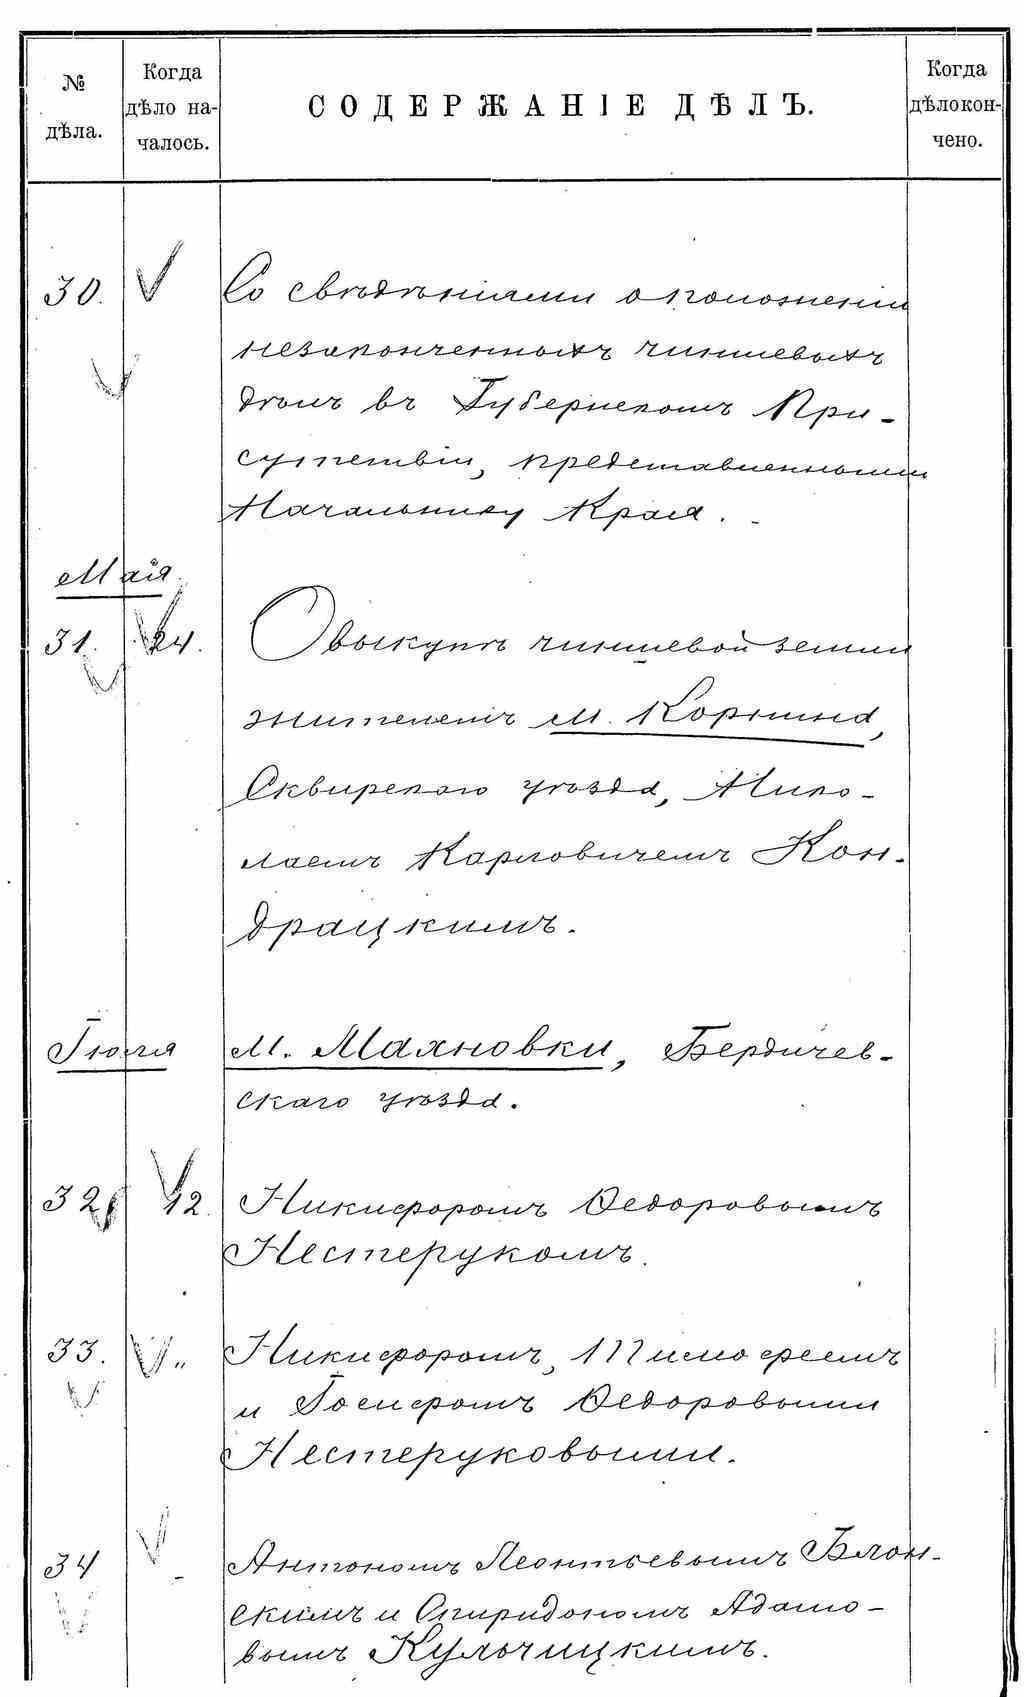 № дѣла.
Когда дѣло на-
чалось.
СОДЕРЖАНІЕ ДѢЛЪ.
Когда дѣло кон-
чено.
30. Со свѣдѣніями о положеніи
незаконченныхъ чиншевыхъ
дѣлъ въ Губернскомъ При-
сутствіи, представленными
Начальнику Края.
Мая
31. 24. О выкупѣ чиншевой земли
жителемъ м. Корнина,
Сквирскаго уѣзда, Нико-
лаемъ Карловичемъ Кон-
драцкимъ.
Іюля м. Махновки, Бердичев-
скаго уѣзда.
32 12. Никифоромъ Ѳедоровымъ
Нестерукомъ.
33. „ Никифоромъ, Тимофеемъ
и Іосифомъ Ѳедоровыми
Нестеруковыми.
34 - Антономъ Леонтьевымъ Блон-
скимъ и Спиридономъ Адамо-
вымъ Кульчицкимъ.